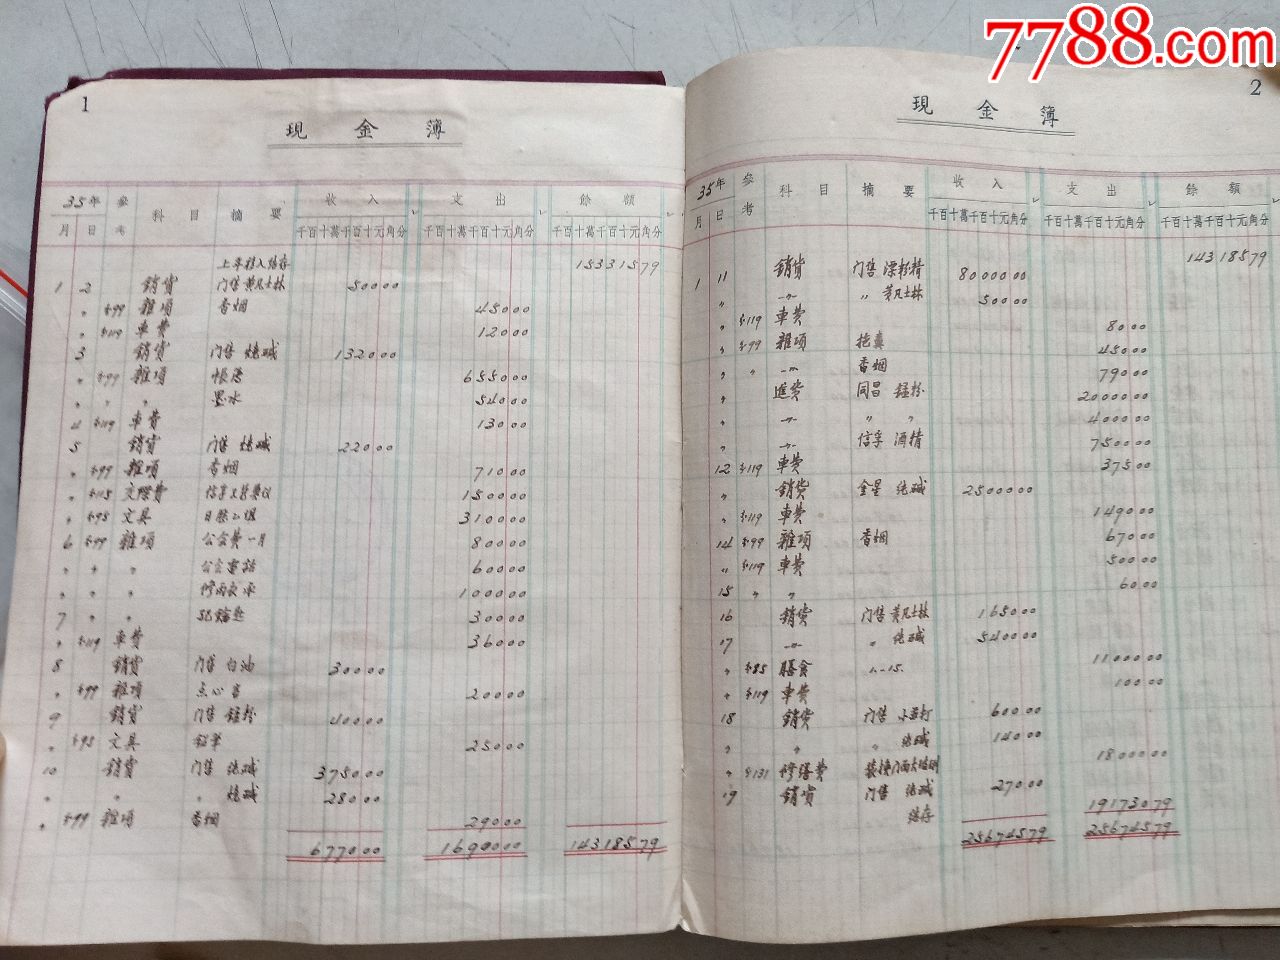 7788.com
1
現金簿
35年 參考 科目 摘要 收入 支出 餘額
月 日 千百十萬千百十元角分 千百十萬千百十元角分 千百十萬千百十元角分
上年移入结存 15331579
1 2 銷貨 门售 黄凡士林 50000
〃 雜項 香烟 45000
〃 車费 12000
3 銷貨 门售 烧碱 132000
〃 雜項 帐簿 655000
〃 〃 墨水 54000
4 車费 13000
5 銷貨 门售 烧碱 22000
〃 雜項 香烟 71000
〃 交際费 150000
〃 文具 310000
6 雜項 公会费一月 80000
〃 〃 60000
〃 〃 100000
7 〃 30000
〃 車费 36000
8 銷貨 门售 白油 30000
〃 雜項 点心 20000
9 銷貨 门售 锰粉 40000
〃 文具 铅笔 25000
10 銷貨 门售 纯碱 375000
〃 〃 烧碱 28000
〃 雜項 香烟 29000
677000 1690000 14318579
2
現金簿
35年 參考 科目 摘要 收入 支出 餘額
月 日 千百十萬千百十元角分 千百十萬千百十元角分 千百十萬千百十元角分
14318579
1 11 銷貨 门售 漂粉精 8000000
〃 〃 黄凡士林 50000
〃 車费 8000
〃 雜項 45000
〃 〃 香烟 79000
〃 進货 同昌 锰粉 2000000
〃 〃 〃 400000
〃 信孚 酒精 750000
12 車费 37500
〃 銷貨 金星 纯碱 2500000
〃 車费 149000
14 雜項 香烟 67000
〃 車费 50000
15 〃 〃 6000
16 銷貨 门售 黄凡士林 165000
17 〃 纯碱 540000
〃 膳食 1100000
〃 車费 10000
18 銷貨 门售 小苏打 60000
〃 〃 〃 纯碱 14000
〃 修缮费 1800000
19 銷貨 门售 纯碱 27000
结存 19173079
25674579 25674579